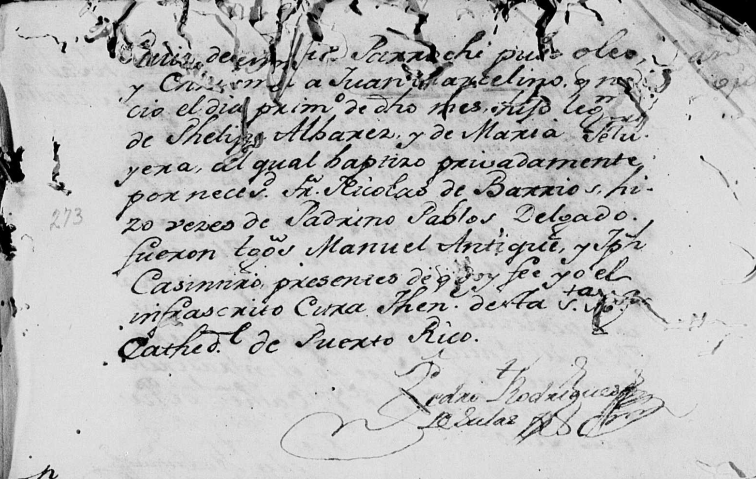 de Parrochi puse oleo,
y a Juan Marcelino, q na
cio el dia prim.o de dho mes, hijo leg.mo
de Phelipe Albarez, y de Maria
yera, al qual baptizo privadamente
por neces.d Fr. Nicolas de Barrios, hi-
zo vezes de Padrino Pablos Delgado.
fueron tgõs Manuel Antiguẽ, y Jph
Casimiro, presentes de q doy fee yo el
infrascrito Cura Then. desta s.ta
Cathed.l de Puerto Rico.
273
Pedro Rodriguez